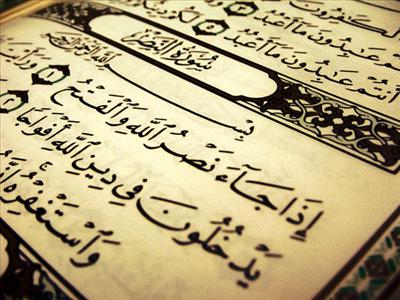 لْكَٰفِرُونَ
أَنتُمْ عَٰبِدُونَ مَآ أَعْبُدُ
أَنتُمْ عَٰبِدُونَ مَآ أَعْبُدُ ۝ لَكُمْ دِين
سُورَةُ النَّصْرِ
بِسْمِ ٱللَّهِ ٱلرَّحْمَٰنِ ٱلرَّحِيمِ
إِذَا جَآءَ نَصْرُ ٱللَّهِ وَٱلْفَتْحُ ۝١ وَرَأَيْتَ
يَدْخُلُونَ فِى دِينِ ٱللَّهِ أَفْوَاجًا ۝٢
وَٱسْتَغْفِرْهُ